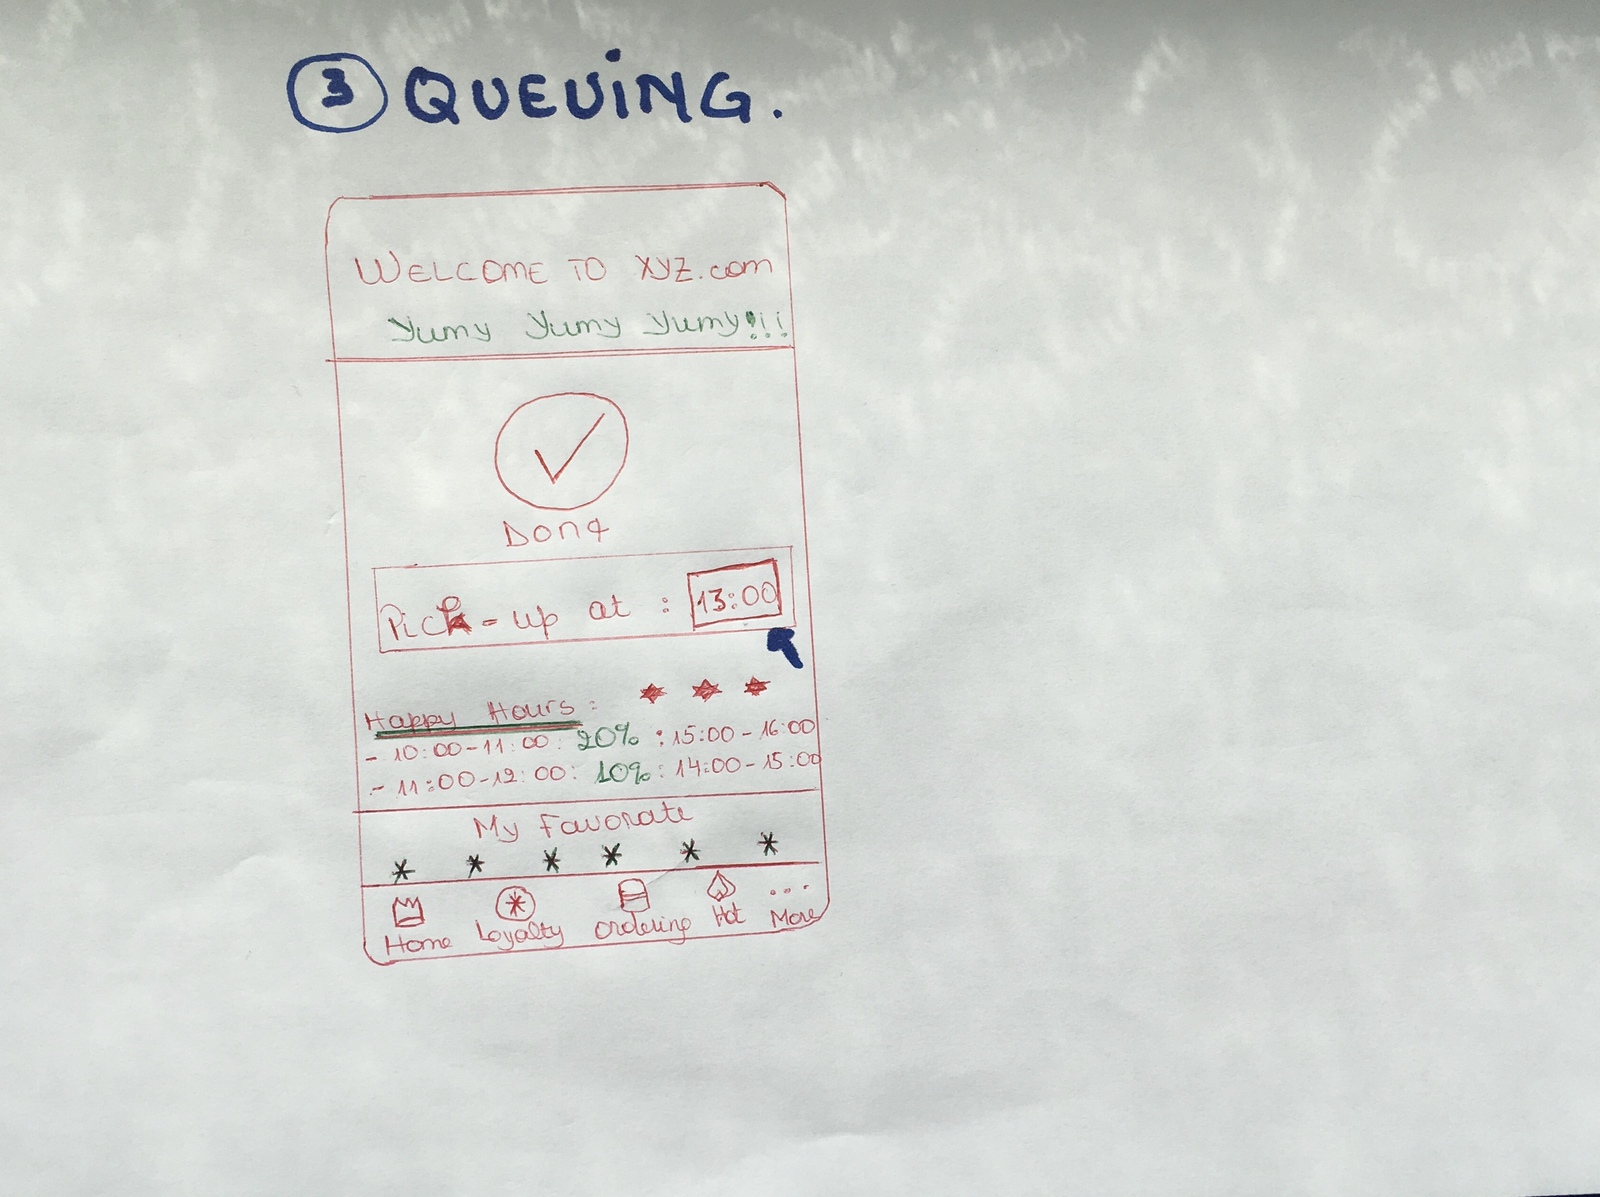 3 QUEUING.
WELCOME TO XYZ.com
Yumy Yumy Yumy!!!
Done
Pick-up at : 13:00
Happy Hours :
- 10:00-11:00: 20% : 15:00-16:00
- 11:00-12:00: 10% : 14:00-15:00
My Favorate
Home Loyalty Ordering Hot More